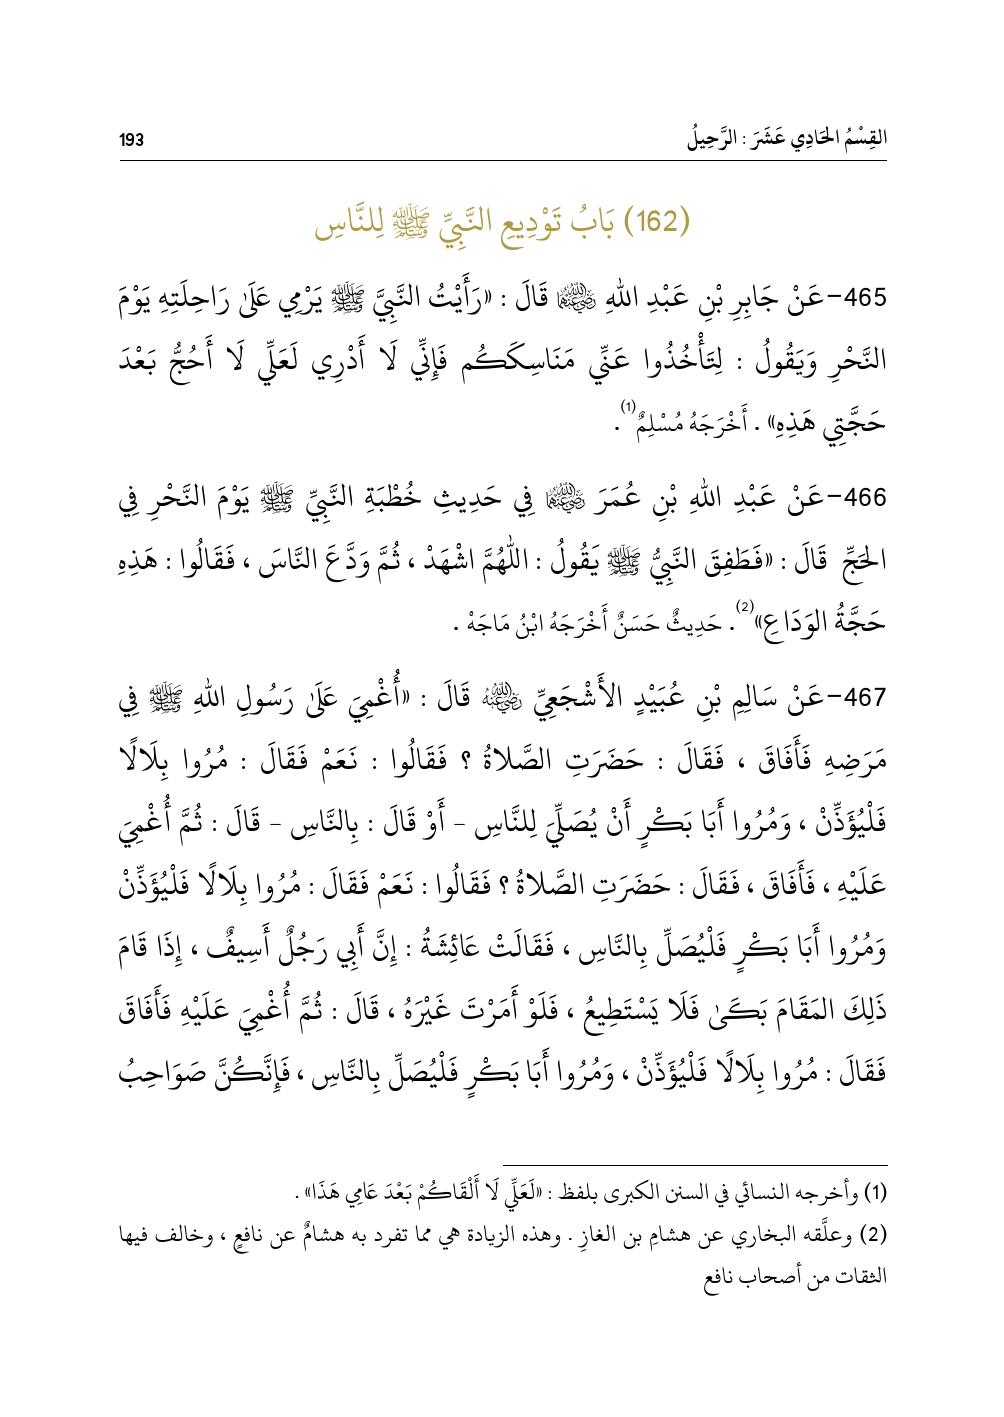 القِسْمُ الحَادِي عَشَرَ : الرَّحِيلُ 193
(162) بَابُ تَوْدِيعِ النَّبِيِّ ﷺ لِلنَّاسِ
465-عَنْ جَابِرِ بْنِ عَبْدِ اللهِ رضي الله عنهما قَالَ : «رَأَيْتُ النَّبِيَّ ﷺ يَرْمِي عَلَىٰ رَاحِلَتِهِ يَوْمَ
النَّحْرِ وَيَقُولُ : لِتَأْخُذُوا عَنِّي مَنَاسِكَكُم فَإِنِّي لَا أَدْرِي لَعَلِّي لَا أَحُجُّ بَعْدَ
حَجَّتِي هَذِهِ» . أَخْرَجَهُ مُسْلِمٌ(1).
466-عَنْ عَبْدِ اللهِ بْنِ عُمَرَ رضي الله عنهما فِي حَدِيثِ خُطْبَةِ النَّبِيِّ ﷺ يَوْمَ النَّحْرِ فِي
الحَجِّ قَالَ : «فَطَفِقَ النَّبِيُّ ﷺ يَقُولُ : اللَّهُمَّ اشْهَدْ ، ثُمَّ وَدَّعَ النَّاسَ ، فَقَالُوا : هَذِهِ
حَجَّةُ الوَدَاعِ»(2). حَدِيثٌ حَسَنٌ أَخْرَجَهُ ابْنُ مَاجَهْ .
467-عَنْ سَالِمِ بْنِ عُبَيْدٍ الأَشْجَعِيِّ رضي الله عنه قَالَ : «أُغْمِيَ عَلَىٰ رَسُولِ اللهِ ﷺ فِي
مَرَضِهِ فَأَفَاقَ ، فَقَالَ : حَضَرَتِ الصَّلاةُ ؟ فَقَالُوا : نَعَمْ فَقَالَ : مُرُوا بِلَالًا
فَلْيُؤَذِّنْ ، وَمُرُوا أَبَا بَكْرٍ أَنْ يُصَلِّيَ لِلنَّاسِ - أَوْ قَالَ : بِالنَّاسِ - قَالَ : ثُمَّ أُغْمِيَ
عَلَيْهِ ، فَأَفَاقَ ، فَقَالَ : حَضَرَتِ الصَّلاةُ ؟ فَقَالُوا : نَعَمْ فَقَالَ : مُرُوا بِلَالًا فَلْيُؤَذِّنْ
وَمُرُوا أَبَا بَكْرٍ فَلْيُصَلِّ بِالنَّاسِ ، فَقَالَتْ عَائِشَةُ : إِنَّ أَبِي رَجُلٌ أَسِيفٌ ، إِذَا قَامَ
ذَلِكَ المَقَامَ بَكَىٰ فَلَا يَسْتَطِيعُ ، فَلَوْ أَمَرْتَ غَيْرَهُ ، قَالَ : ثُمَّ أُغْمِيَ عَلَيْهِ فَأَفَاقَ
فَقَالَ : مُرُوا بِلَالًا فَلْيُؤَذِّنْ ، وَمُرُوا أَبَا بَكْرٍ فَلْيُصَلِّ بِالنَّاسِ ، فَإِنَّكُنَّ صَوَاحِبُ
(1) وأخرجه النسائي في السنن الكبرى بلفظ : «لَعَلِّي لَا أَلْقَاكُمْ بَعْدَ عَامِي هَذَا» .
(2) وعلَّقه البخاري عن هشامِ بن الغازِ . وهذه الزيادة هي مما تفرد به هشامٌ عن نافعٍ ، وخالف فيها
الثقات من أصحاب نافع